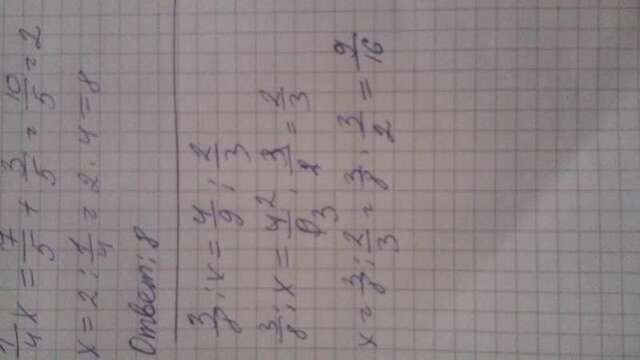 1/4 x = 7/5 + 3/5 = 10/5 = 2
x = 2 : 1/4 = 2 · 4 = 8
Ответ: 8
3/8 : x = 4/9 : 2/3
3/8 : x = 4/9 2/3 · 3/2 = 2/3
x = 3/8 : 2/3 = 3/8 · 3/2 = 9/16